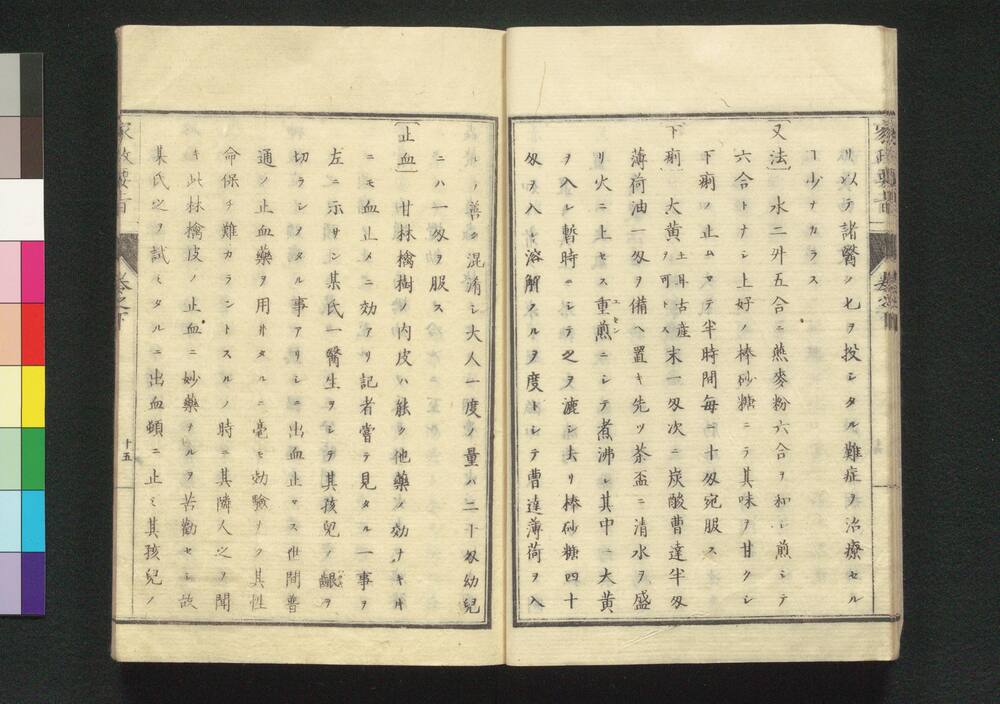 リ以テ諸醫ノ匕ヲ投シタル難症ヲ治療セル
ヿ少ナカラス
〔又法〕 水二升五合ニ燕麥粉六合ヲ和シ煎シテ
六合トナシ上好ノ棒砂糖ニテ其味ヲ甘クシ
下痢ノ止ムマテ半時間毎ニ十匁宛服ス
〔下痢〕 大黄土耳古産ヲ可トス末一匁次ニ炭酸曹達半匁
薄荷油一匁ヲ備ヘ置キ先ツ茶盃ニ清水ヲ盛
リ火ニ上セス重煎ユセンニシテ煮沸シ其中ニ大黄
ヲ入レ暫時ニシテ之ヲ漉シ去リ棒砂糖四十
匁ヲ入レ溶解スルヲ度トシテ曹達薄荷ヲ入
レ善ク混淆シ大人一度ノ量ハ二十匁幼兒
ニハ一匁ヲ服ス
〔止血〕 甘林檎樹ノ内皮ハ能ク他藥ノ効ナキ
ニモ血止メニ効アリ記者嘗テ見タル一事ヲ
左ニ示サン某氏一醫生ヲシテ其孩兒ノ齦ヲ
切ラシメタル事アリシニ出血止マス世間普
通ノ止血藥ヲ用ヰタルニ毫モ効驗ナク其性
命保チ難カラントスルノ時ニ其隣人之ヲ聞
キ此林檎皮ノ止血ニ妙藥ナルヲ苦勸セシ故
某氏之ヲ試ミタルニ出血頓ニ止ミ其孩兒ノ
家政要旨
卷之下
十五